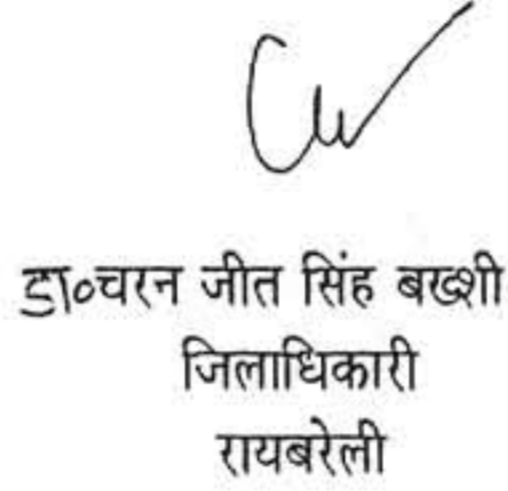 डा०चरन जीत सिंह बख्शी
जिलाधिकारी
रायबरेली